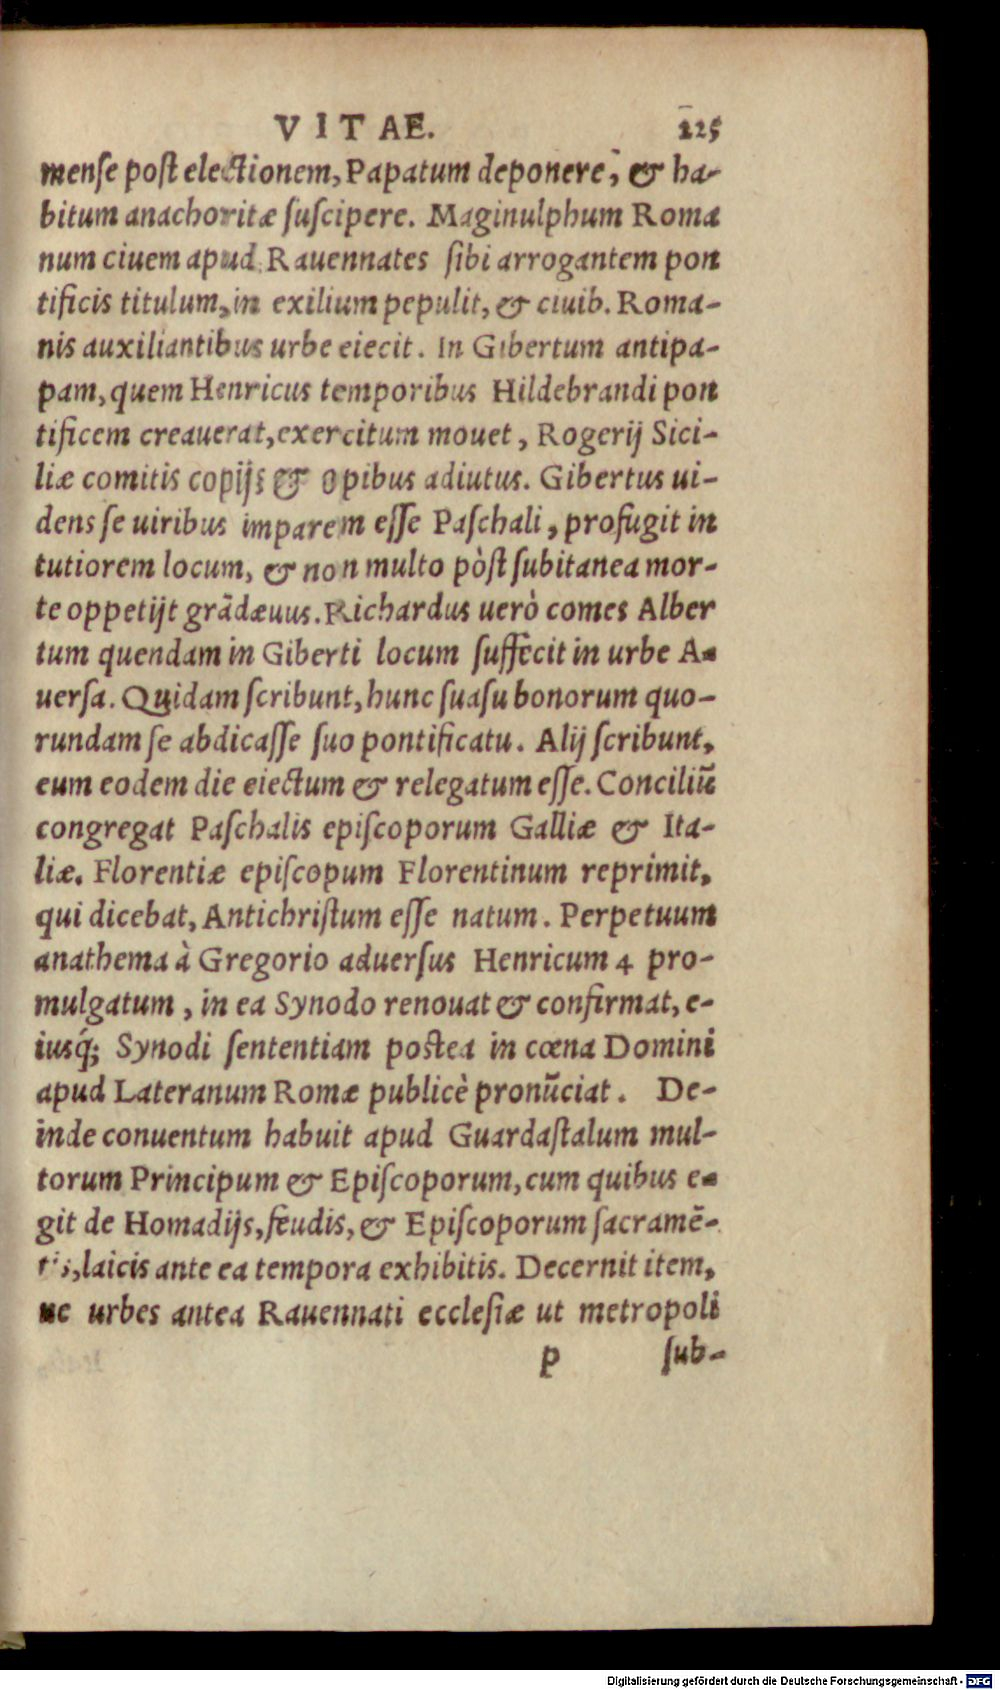 VITAE. 225
mense post electionem, Papatum deponere, & ha-
bitum anachoritæ suscipere. Maginulphum Roma
num ciuem apud Rauennates sibi arrogantem pon
tificis titulum, in exilium pepulit, & ciuib. Roma-
nis auxiliantibus urbe eiecit. In Gibertum antipa-
pam, quem Henricus temporibus Hildebrandi pon
tificem creauerat, exercitum mouet, Rogerij Sici-
liæ comitis copijs & opibus adiutus. Gibertus ui-
dens se uiribus imparem esse Paschali, profugit in
tutiorem locum, & non multo pòst subitanea mor-
te oppetijt grãdæuus. Richardus uerò comes Alber
tum quendam in Giberti locum suffècit in urbe A-
uersa. Quidam scribunt, hunc suasu bonorum quo-
rundam se abdicasse suo pontificatu. Alij scribunt,
eum eodem die eiectum & relegatum esse. Conciliũ
congregat Paschalis episcoporum Galliæ & Ita-
liæ. Florentiæ episcopum Florentinum reprimit,
qui dicebat, Antichristum esse natum. Perpetuum
anathema à Gregorio aduersus Henricum 4 pro-
mulgatum, in ea Synodo renouat & confirmat, e-
iusq́; Synodi sententiam postea in cœna Domini
apud Lateranum Romæ publicè pronũciat. De-
inde conuentum habuit apud Guardastalum mul-
torum Principum & Episcoporum, cum quibus e-
git de Homadijs, feudis, & Episcoporum sacramẽ-
tis, laicis ante ea tempora exhibitis. Decernit item,
ne urbes antea Rauennati ecclesiæ ut metropoli
p sub-
Digitalisierung gefördert durch die Deutsche Forschungsgemeinschaft - DFG